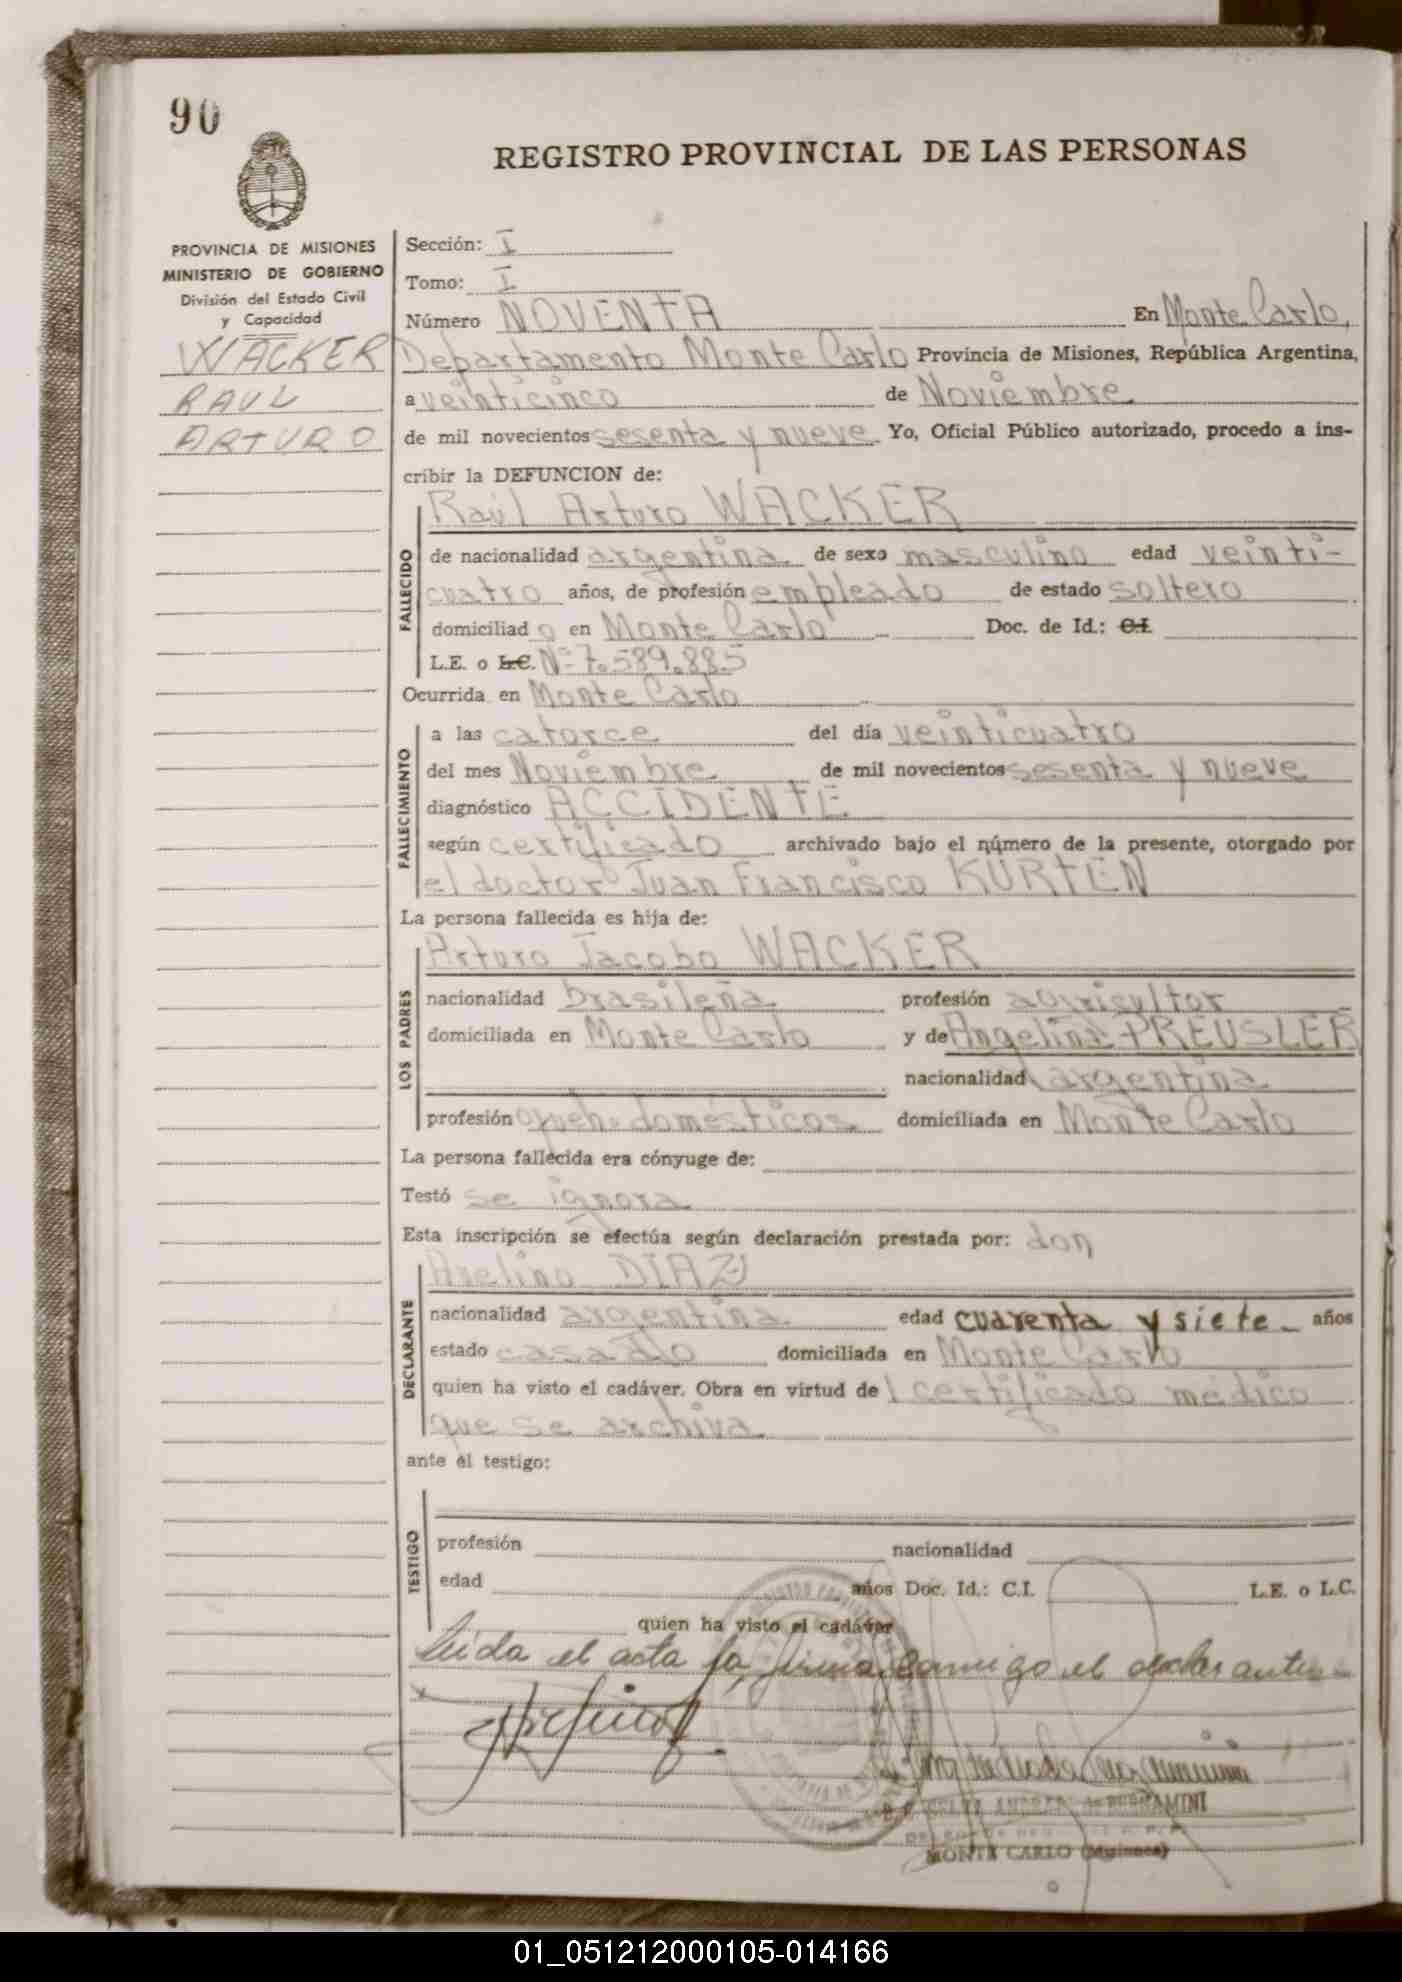 90
REGISTRO PROVINCIAL DE LAS PERSONAS
PROVINCIA DE MISIONES
MINISTERIO DE GOBIERNO
División del Estado Civil
y Capacidad
WACKER
RAUL
ARTURO
Sección: I
Tomo: I
Número NOVENTA En Monte Carlo,
Departamento Monte Carlo Provincia de Misiones, República Argentina,
a veinticinco de Noviembre
de mil novecientos sesenta y nueve Yo, Oficial Público autorizado, procedo a ins-
cribir la DEFUNCION de:
FALLECIDO
Raúl Arturo WACKER
de nacionalidad argentina de sexo masculino edad veinti-
cuatro años, de profesión empleado de estado soltero
domiciliad o en Monte Carlo Doc. de Id.: C.I.
L.E. o L.C. Nº 7.589.885
Ocurrida en Monte Carlo
FALLECIMIENTO
a las catorce del día veinticuatro
del mes Noviembre de mil novecientos sesenta y nueve
diagnóstico ACCIDENTE
según certificado archivado bajo el número de la presente, otorgado por
el doctor Juan Francisco KURTEN
La persona fallecida es hija de:
LOS PADRES
Arturo Jacobo WACKER
nacionalidad brasileña profesión agricultor
domiciliada en Monte Carlo y de Angelina PREUSLER
nacionalidad argentina
profesión queh. domésticos domiciliada en Monte Carlo
La persona fallecida era cónyuge de:
Testó se ignora
Esta inscripción se efectúa según declaración prestada por: don
DECLARANTE
Avelino DIAZ
nacionalidad argentina edad cuarenta y siete años
estado casado domiciliada en Monte Carlo
quien ha visto el cadáver. Obra en virtud de l certificado médico
que se archiva
ante el testigo:
TESTIGO
profesión nacionalidad
edad años Doc. Id.: C.I. L.E. o L.C.
quien ha visto el cadáver
Leída el acta la firma conmigo el declarante
MONTE CARLO (Misiones)
01_051212000105-014166